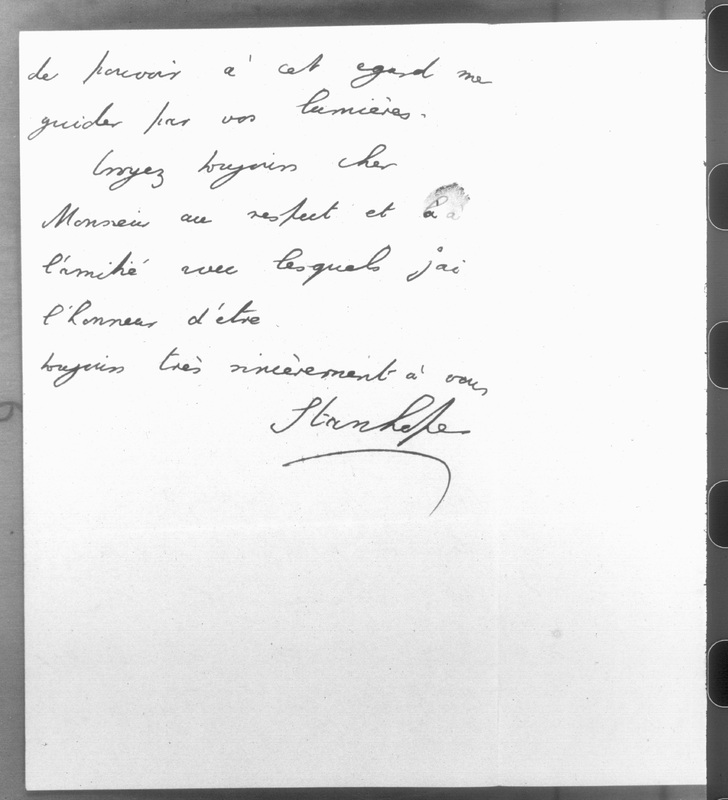 de pouvoir à cet egard me
guider par vos lumières.
Croyez toujours cher
Monsieur au respect et à
l'amitié avec lesquels j'ai
l'honneur d'être
toujours très sincèrement à vous
Stanhope